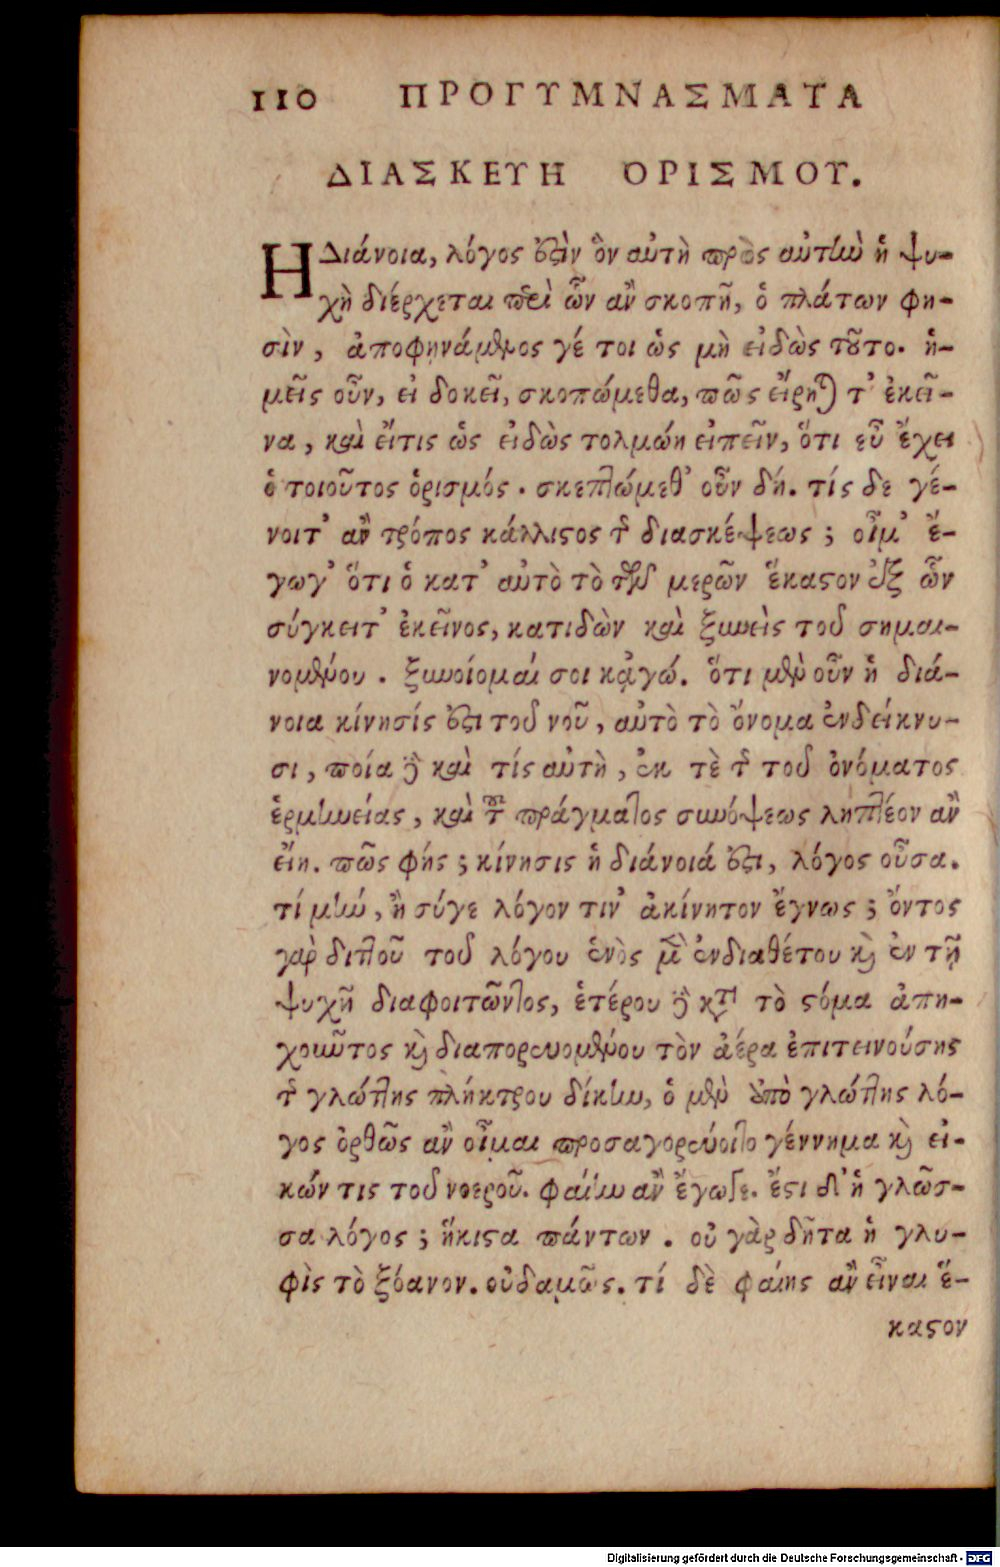 110 ΠΡΟΓΥΜΝΑΣΜΑΤΑ
ΔΙΑΣΚΕΥΗ ΟΡΙΣΜΟΥ.
Η Διάνοια, λόγος ἐστὶν ὃν αὐτὴ πρὸς αὑτὴν ἡ ψυ-
χὴ διέρχεται περὶ ὧν ἂν σκοπῇ, ὁ πλάτων φη-
σὶν, ἀποφηνάμενος γέ τοι ὡς μὴ εἰδὼς τοῦτο. ἡ-
μεῖς οὖν, εἰ δοκεῖ, σκοπώμεθα, πῶς εἴρηται τ' ἐκεῖ-
να, καὶ εἴτις ὡς εἰδὼς τολμῴη εἰπεῖν, ὅτι εὖ ἔχει
ὁ τοιοῦτος ὁρισμός. σκεπτώμεθ' οὖν δή. τίς δε γέ-
νοιτ' ἂν τρόπος κάλλιστος τῆς διασκέψεως; οἶμ' ἔ-
γωγ' ὅτι ὁ κατ' αὐτὸ τὸ τῶν μερῶν ἕκαστον ἐξ ὧν
σύγκειτ' ἐκεῖνος, κατιδὼν καὶ ξυνεὶς τοῦ σημαι-
νομένου. ξυνοίομαί σοι κᾀγώ. ὅτι μὲν οὖν ἡ διά-
νοια κίνησίς ἐστι τοῦ νοῦ, αὐτὸ τὸ ὄνομα ἐνδείκνυ-
σι, ποία δὲ καὶ τίς αὐτὴ, ἐκ τὲ τῆς τοῦ ὀνόματος
ἑρμηνείας, καὶ τῆς τοῦ πράγματος συνόψεως ληπτέον ἂν
εἴη. πῶς φῄς; κίνησις ἡ διάνοιά ἐστι, λόγος οὖσα.
τί μήν, ἢ σύγε λόγον τιν' ἀκίνητον ἔγνως; ὄντος
γὰρ διττοῦ τοῦ λόγου ἑνὸς μὲν ἐνδιαθέτου καὶ ἐν τῇ
ψυχῇ διαφοιτῶντος, ἑτέρου δὲ κατὰ τὸ στόμα ἀπη-
χοῦντος καὶ διαπορευομένου τὸν ἀέρα ἐπιτεινούσης
τῆς γλώττης πλήκτρου δίκην, ὁ μὲν ὑπὸ γλώττης λό-
γος ὀρθῶς ἂν οἶμαι προσαγορεύοιτο γέννημα καὶ εἰ-
κών τις τοῦ νοεροῦ. φαίην ἂν ἔγωγε. ἔστι δ' ἡ γλῶσ-
σα λόγος; ἥκιστα πάντων. οὐ γὰρ δῆτα ἡ γλυ-
φὶς τὸ ξόανον. οὐδαμῶς. τί δὲ φαίης ἂν εἶναι ἕ-
καστον
Digitalisierung gefördert durch die Deutsche Forschungsgemeinschaft - DFG